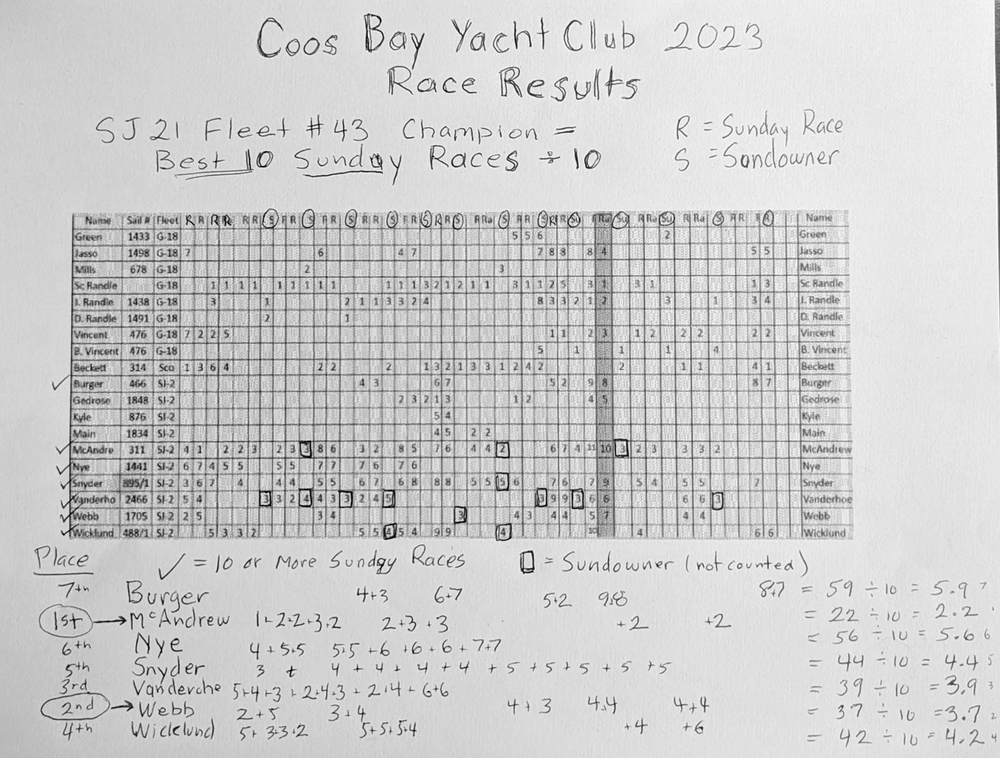 Coos Bay Yacht Club 2023
Race Results
SJ 21 Fleet #43 Champion =
Best 10 Sunday Races ÷ 10
R = Sunday Race
S = Sondowner
Name Sail # Fleet Name
Green 1433 G-18 5 5 6 2 Green
Jasso 1498 G-18 7 6 4 7 7 8 8 8 4 5 5 Jasso
Mills 678 G-18 2 3 Mills
Sc Randle G-18 1 1 1 1 1 1 1 1 1 1 1 1 3 2 1 2 1 1 3 1 1 2 5 3 1 3 1 1 3 Sc Randle
J. Randle 1438 G-18 3 1 2 1 1 3 3 2 4 8 3 3 2 1 2 3 1 3 4 J. Randle
D. Randle 1491 G-18 2 1 D. Randle
Vincent 476 G-18 7 2 2 5 1 1 2 3 1 2 2 2 2 2 Vincent
B. Vincent 476 G-18 5 1 1 1 4 B. Vincent
Beckett 314 Sco 1 3 6 4 2 2 2 1 3 2 1 3 3 1 2 4 2 2 1 1 4 1 Beckett
Burger 466 SJ-2 4 3 6 7 5 2 9 8 8 7 Burger
Gedrose 1848 SJ-2 2 3 2 1 3 1 2 4 5 Gedrose
Kyle 876 SJ-2 5 4 Kyle
Main 1834 SJ-2 4 5 2 2 Main
McAndre 311 SJ-2 4 1 2 2 3 2 3 3 8 6 3 2 8 5 7 6 4 4 2 6 7 4 11 10 3 2 3 3 3 2 McAndrew
Nye 1441 SJ-2 6 7 4 5 5 5 5 7 7 7 6 7 6 Nye
Snyder 895/1 SJ-2 3 6 7 4 4 4 5 5 6 7 6 8 8 8 5 5 5 6 7 6 7 9 5 4 5 5 7 Snyder
Vanderho 2466 SJ-2 5 4 3 3 2 4 4 3 3 2 4 5 3 9 9 3 6 6 6 6 3 Vanderhoe
Webb 1705 SJ-2 2 5 3 4 3 4 3 4 4 5 7 4 4 Webb
Wicklund 488/1 SJ-2 5 3 3 2 5 5 4 5 4 9 9 4 10 4 6 6 Wicklund
Place ✓ = 10 or More Sunday Races = Sundowner (not counted)
7th Burger 4+3 6+7 5+2 9+8 8+7 = 59 ÷ 10 = 5.9 7
1st → McAndrew 1+2+2+3+2 2+3+3 +2 +2 = 22 ÷ 10 = 2.2
6th Nye 4+5+5 5+5+6+6+6+7+7 = 56 ÷ 10 = 5.6 6
5th Snyder 3 + 4+4+4+4+5+5+5+5+5 = 44 ÷ 10 = 4.4 5
3rd Vanderohe 5+4+3+2+4+3+2+4+6+6 = 39 ÷ 10 = 3.9 3
2nd → Webb 2+5 3+4 4+3 4+4 4+4 = 37 ÷ 10 = 3.7 2
4th Wicklund 5+3+3+2 5+5+5+4 +4 +6 = 42 ÷ 10 = 4.2 4